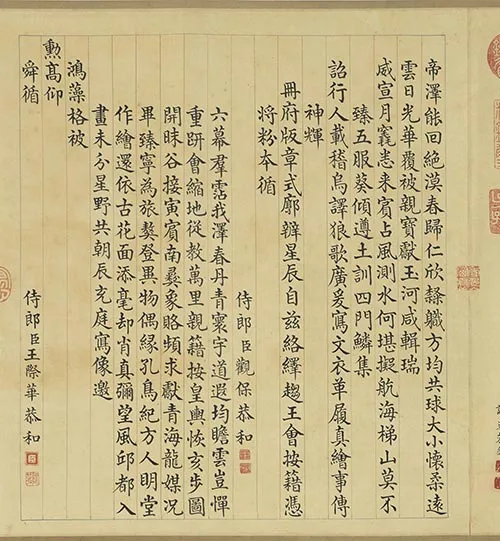 帝澤能回絶漠春歸仁欣隸職方均共球大小懷柔遠
雲日光華覆被親寶獻玉河咸輯瑞
威宣月竁悉来賓占風測水何堪擬航海梯山莫不
臻五服葵傾遵土訓四門鱗集
詔行人載稽鳥譯狼歌廣爰寫文衣革履真繪事傳
神輝
冊府版章式廓辦星辰自兹絡繹趨王會按籍憑
將粉本循
侍郎臣觀保恭和
六幕羣霑我澤春丹青寰宇道遐均瞻雲豈憚
重趼會縮地從教萬里親籍按皇輿恢亥步圖
開昧谷接寅賓南彝象賂頻求獻青海龍媒况
畢臻寧為旅獒登異物偶緣孔鳥紀方人明堂
作繪還依古花面添毫却肖真彌望風邱都入
畫未分星野共朝辰充庭寫像邀
鴻藻格被
勲高仰
舜循
侍郎臣王際華恭和